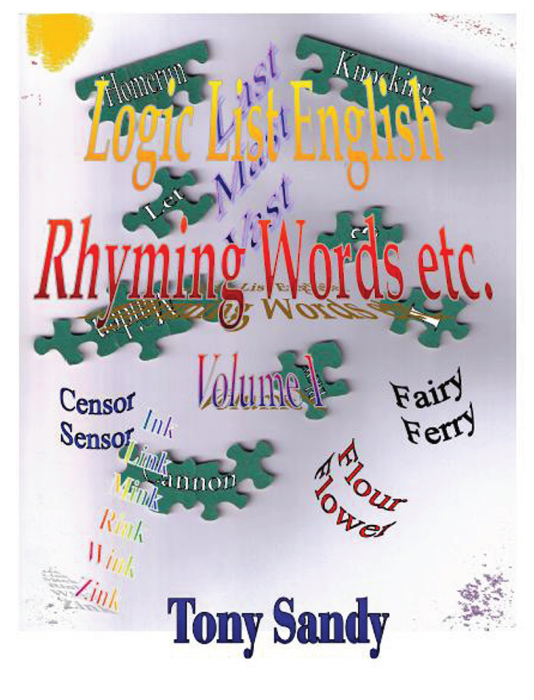 Homerun
Knocking
Logic List English
Last
Mast
Vast
Let
Rhyming Words etc.
Volume 1
Censor
Sensor
Fairy
Ferry
Ink
Link
Mink
Rink
Wink
Zink
annon
Flour
Flower
Tony Sandy